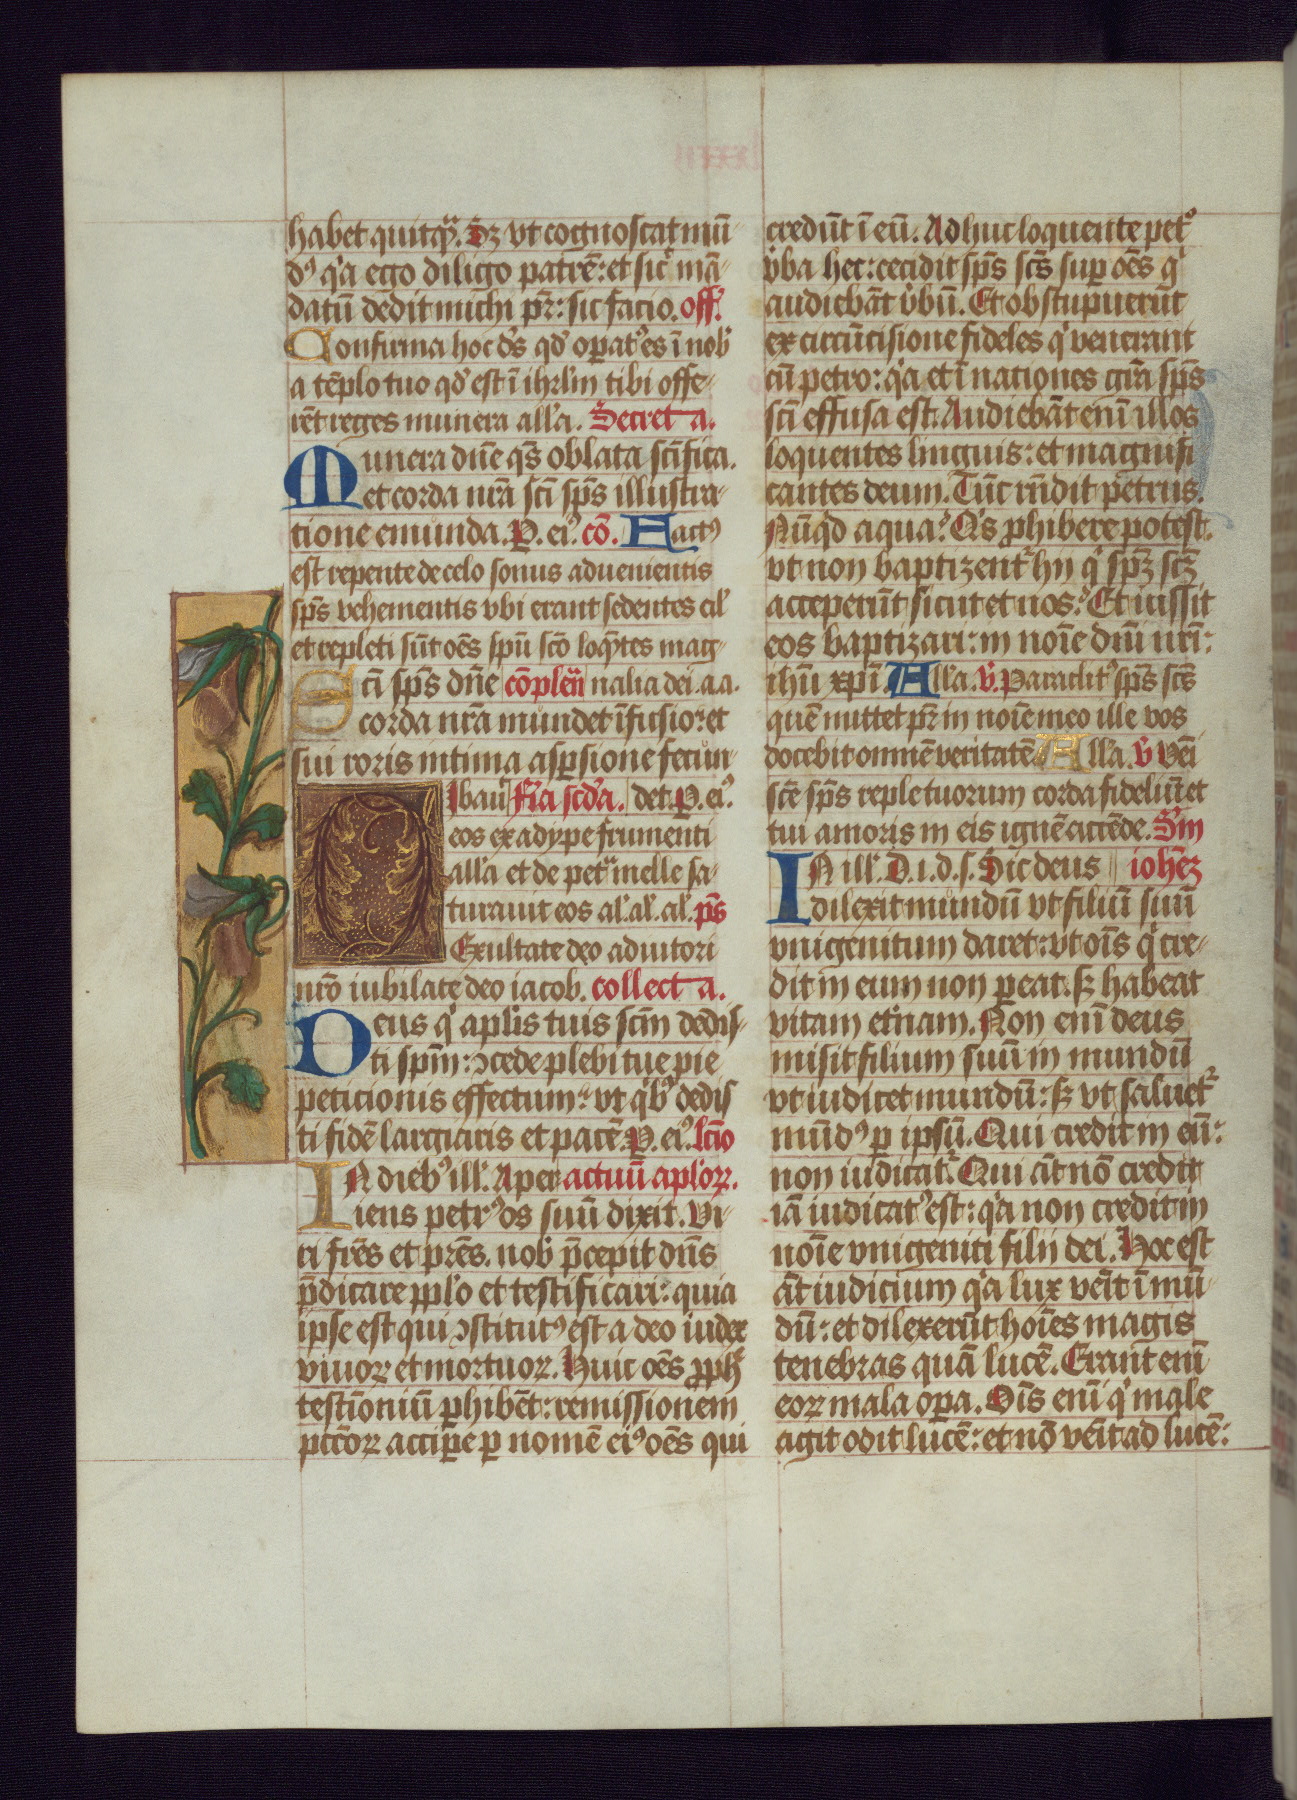 habet quitqͣ. Sz vt cognoscat mū-
dꝰ qͥa ego diligo patrē: et sicͭ mā-
datū dedit michi pr̄: sic facio. off.
Confirma hoc ds̄ qd̓ opatꝰ es ī nob̓
a tēplo tuo qd̓ est ī ihrl̓m tibi offe-
rēt reges munera all̓a. Secreta.
Munera dn̄e qs̄ oblata scīfica.
et corda nrā scī sps̄ illustra-
tione emunda. P. eiꝰ. cō. Factꝰ
est repente de celo sonus aduenientis
sps̄ vehementis vbi erant sedentes al̓
et repleti sūt oēs spū scō loqͣtes mag-
Scī sps̄ dn̄e cōplen̄ nalia dei. a.a.
corda nrā mundet īfusio: et
sui roris intima aspsione fecun-
Cibau̓ Fīa scd̓a. det. P. eiꝰ.
eos ex adype frumenti
all̓a et de petͣ melle sa-
turauit eos al̓. al̓. al̓. ps̄
Exultate deo adiutori
nrō iubilate deo iacob. collecta.
Deus qͥ apl̓is tuis scm̄ dedis-
ti spm̄: ꝯcede plebi tue pie
peticionis effectum: vt qͥbꝰ dedis
ti fidē largiaris et pacē. P. eiꝰ. lcīo
IN diebꝰ ill̓. Aper actuū apl̓oꝝ.
iens petrꝰ os suū dixit. Vi-
ri frēs et prēs. nob̓ p̄cepit dn̄s
p̄dicare ppl̓o et testificari: quia
ipse est qui ꝯstitutꝰ est a deo iudex
viuoꝝ et mortuoꝝ. Huic oēs ꝓph̄
testīoniū ꝑhibēt: remissionem
pccōꝝ accipe ꝑ nomē eiꝰ oēs qui
credūt ī eū. Adhuc loquente petꝰ
v̓ba hec: cecidit sps̄ scs̄ suꝑ oēs qͥ
audiebāt v̓bū. Et obstupuerūt
ex circūcisione fideles qͥ venerant
cū petro: qͥa et ī nationes grā sps̄
scī effusa est. Audiebāt enī illos
loquentes linguis: et magnifi
cantes deum. Tūc rn̄dit petrus.
Nūqͥd aquā qͥs ꝓhibere potest.
vt non baptizentͬ hij qͥ spz̄ scz̄
acceperūt sicut et nos? Et iussit
eos baptizari: in noīe dnī nrī:
ihū xpī. All̓a. v̓. Paraclitꝰ sps̄ scs̄
quē mittet pr̄ in noīe meo ille vos
docebit omnē veritatē. All̓a. v̓ Veni
scē sps̄ reple tuorum corda fideliū et
tui amoris in eis ignē accēde. Sm̄
IN ill̓. D. i. d. s. Sic deus iohēz
dilexit mundū vt filiū suū
vnigenitum daret: vt oīs qͥ cre-
dit in eum non ꝑeat. sꝫ habeat
vitam et̓nam. Non enī deus
misit filium suū in mundū
vt iudicet mundū: sꝫ vt saluetͬ
mūdꝰ ꝑ ipsū. Qui credit in eū:
non iudicatͬ. Qui āt nō credit
iā iudicatꝰ est: qͥa non credit in
noīe vnigeniti filij dei. Hoc est
āt iudicium qͥa lux venīt ī mū-
dū: et dilexerūt hoīes magis
tenebras quā lucē. Erant enī
eoꝝ mala oꝑa. Oīs enī qͥ male
agit odit lucē: et nō venīt ad lucē: